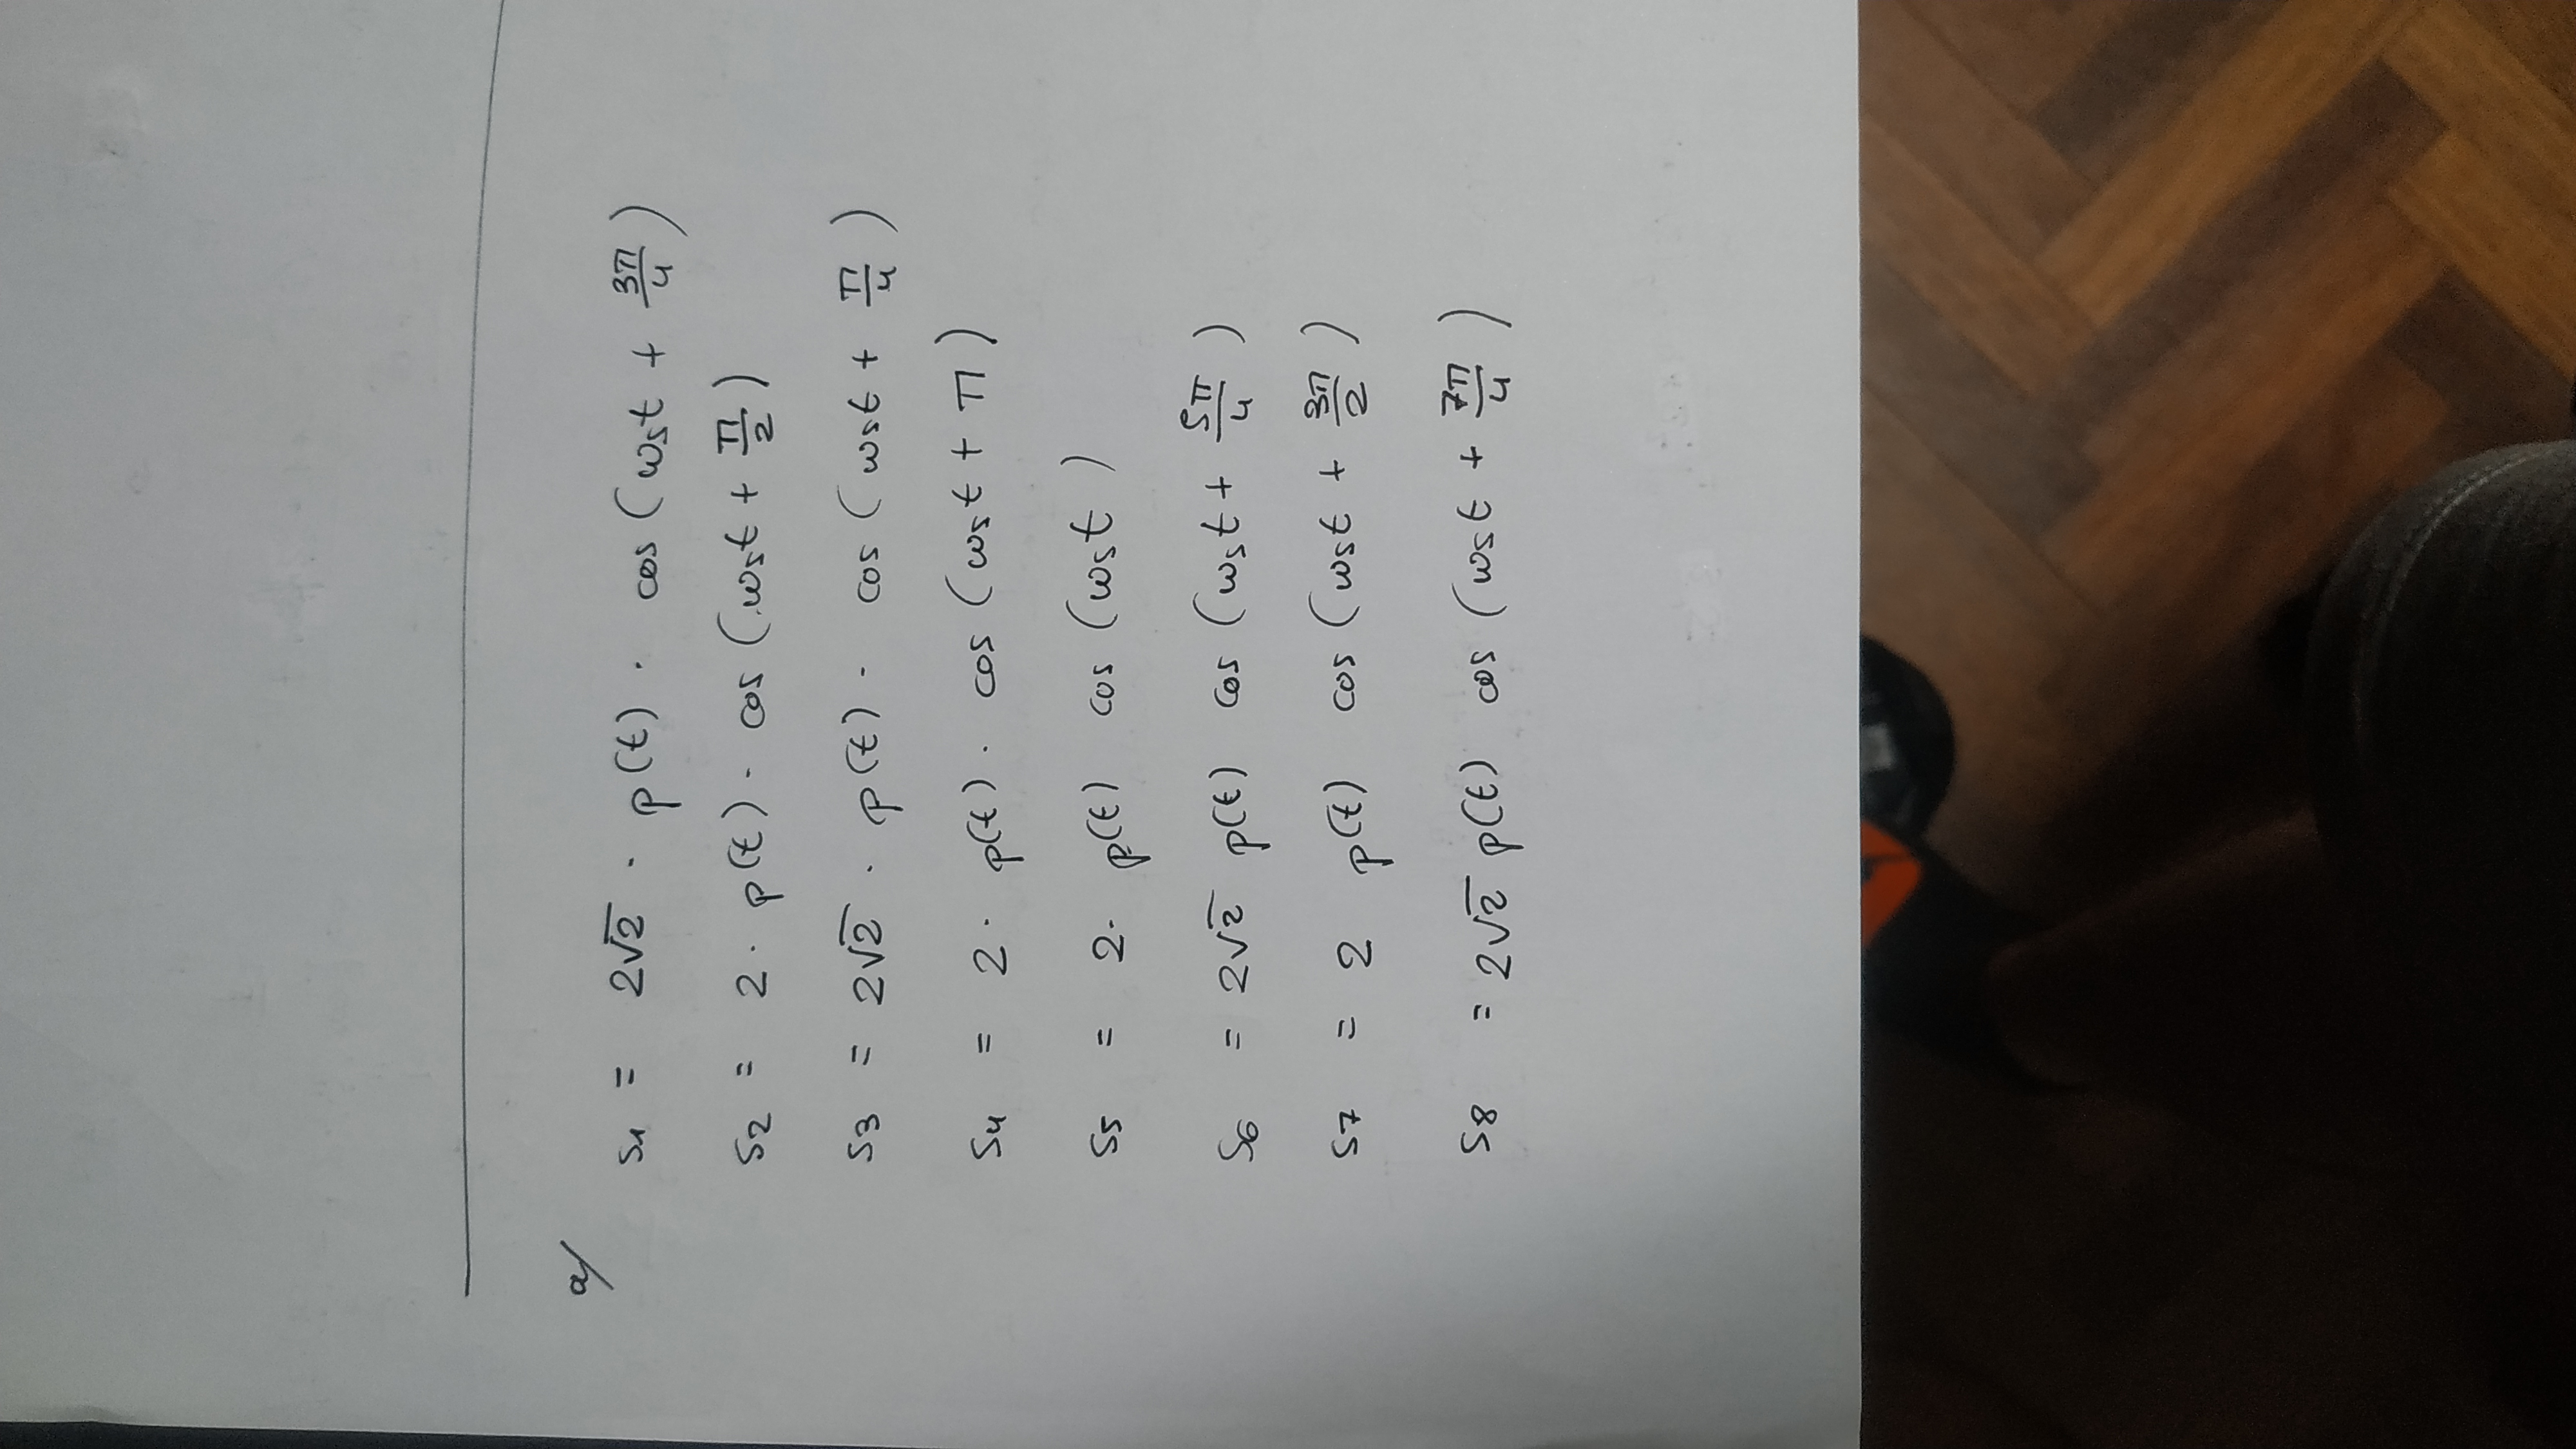 a/
s1 = 2√2 · p(t) · cos (ωst + 3π/4)
s2 = 2 · p(t) · cos (ωst + π/2)
s3 = 2√2 · p(t) · cos (ωst + π/4)
s4 = 2 · p(t) · cos (ωst + π)
s5 = 2 · p(t) cos (ωst )
s6 = 2√2 p(t) cos (ωst + 5π/4)
s7 = 2 p(t) cos (ωst + 3π/2)
s8 = 2√2 p(t) cos (ωst + 7π/4)